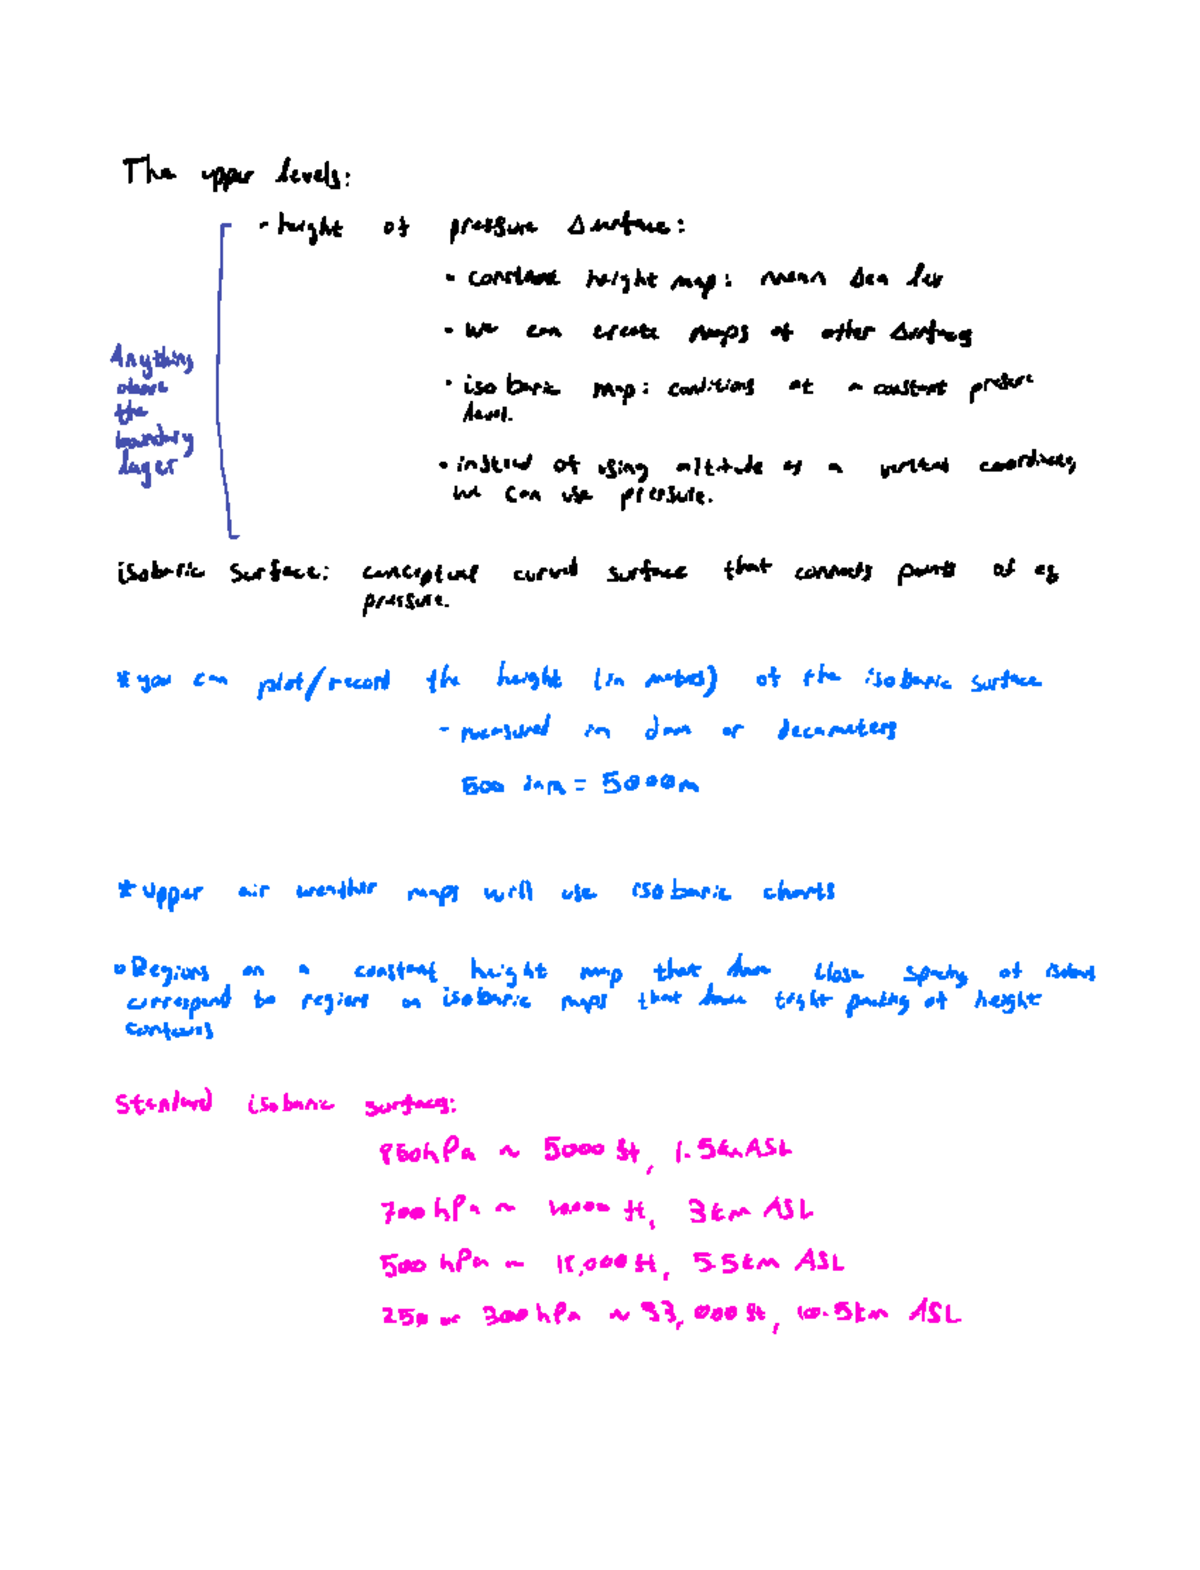 The upper levels:
- height of pressure surface:
• constant height map: mean sea lev
• we can create maps of other surfaces
• isobaric map: conditions at a constant pressure
level.
• instead of using altitude as a vertical coordinate,
we can use pressure.
Anything
above
the
boundary
layer
isobaric surface: conceptual curved surface that connects points of eq
pressure.
* you can plot/record the height (in metres) of the isobaric surface
- measured in dam or decameters
500 dam = 5000m
* Upper air weather maps will use isobaric charts
Regions on a constant height map that have close spacing of isobars
correspond to regions on isobaric maps that have tight packing of height
contours
Standard isobaric surfaces:
850hPa ~ 5000 ft, 1.5km ASL
700 hPa ~ 10,000 ft, 3km ASL
500 hPa ~ 18,000 ft, 5.5km ASL
250 or 300 hPa ~ 33,000 ft, 10.5km ASL